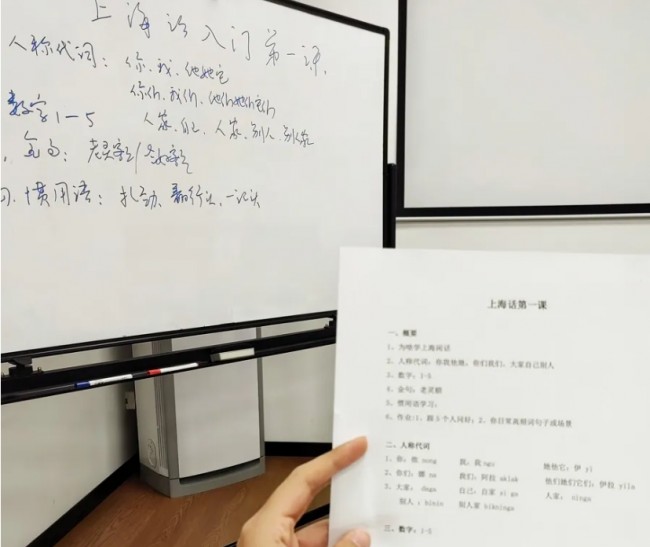 上海话入门第一课
人称代词：你、我、他她它
你们、我们、他们她们它们
人家、自己、人家、别人、别人家
数字1-5
金句：老灵额
惯用语：扎劲、翻行头、一记头
上海话第一课
一、概要
1、为啥学上海闲话
2、人称代词：你我他她，你们我们，大家自己别人
3、数字：1-5
4、金句：老灵额
5、惯用语学习：
6、作业：1、跟5个人问好；2、你日常高频词句子或场景
二、人称代词
1、你：侬 nong 我：我 ngu 他她它：伊 yi
2、你们：倻 na 我们：阿拉 aklak 他们她们它们：伊拉 yila
3、大家： daga 自己：自家 si ga 人家： ninga
别人：bixin 别人家 bikninga
三、数字：1-5